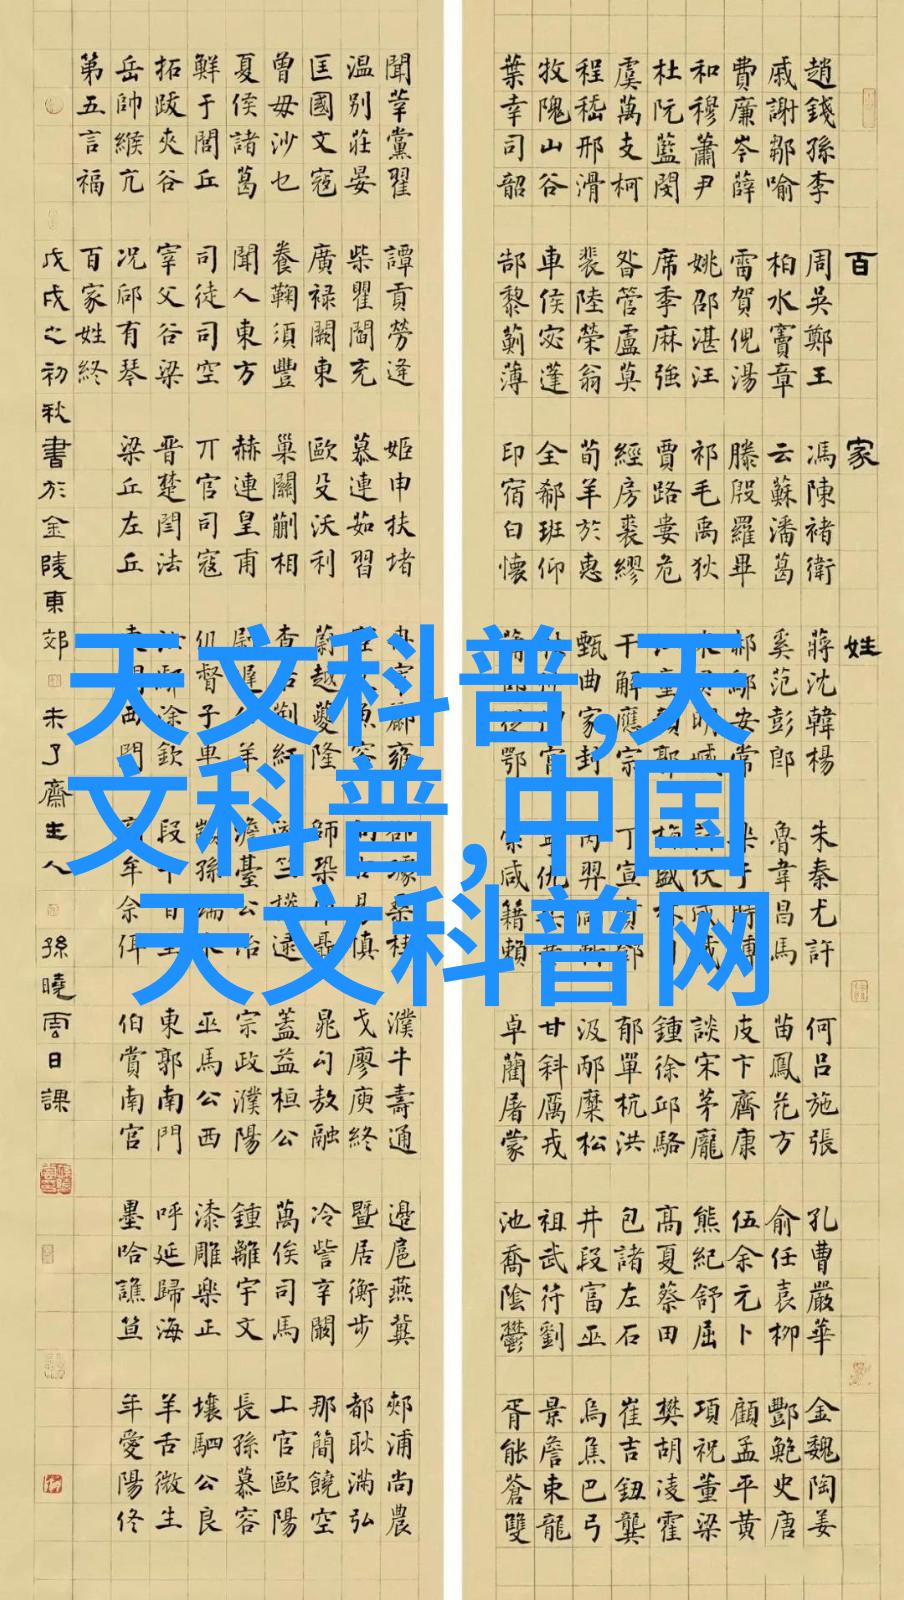 百家姓
趙錢孫李 周吳鄭王 馮陳褚衛 蔣沈韓楊 朱秦尤許 何呂施張 孔曹嚴華 金魏陶姜
戚謝鄒喻 柏水竇章 云蘇潘葛 奚范彭郎 魯韋昌馬 苗鳳花方 俞任袁柳 酆鮑史唐
費廉岑薛 雷賀倪湯 滕殷羅畢 郝鄔安常 于時傅 皮卞齊康 伍余元卜 顧孟平黃
和穆蕭尹 姚邵湛汪 祁毛禹狄 明臧 伏成戴 談宋茅龐 熊紀舒屈 項祝董梁
杜阮藍閔 席季麻強 賈路婁危 童郭 梅盛林 鍾徐邱駱 高夏蔡田 樊胡凌霍
虞萬支柯 昝管盧莫 經房裘繆 干解應宗 丁宣賁鄧 郁單杭洪 包諸左石 崔吉鈕龔
程嵇邢滑 裴陸榮翁 荀羊於惠 甄曲家封 芮羿靳 汲邴糜松 井段富巫 烏焦巴弓
牧隗山谷 車侯宓蓬 全郗班仰 宮 仇 甘斜厲戎 祖武符劉 景詹束龍
葉幸司韶 郜黎薊薄 印宿白懷 從鄂 索咸籍賴 卓藺屠蒙 池喬陰鬱 胥能蒼雙
聞莘黨翟 譚貢勞逄 姬申扶堵 冉宰酈雍 璩桑桂 濮牛壽通 邊扈燕冀 郟浦尚農
温別莊晏 柴瞿閻充 慕連茹習 魚容 古易慎 戈廖庾終 暨居衡步 都耿滿弘
匡國文寇 廣祿闕東 歐殳沃利 蔚越夔隆 師鞏聶 晁勾敖融 冷訾辛闞 那簡饒空
曾毋沙乜 養鞠須豐 巢關蒯相 查后荊紅 竺權逯 蓋益桓公 萬俟司馬 上官歐陽
夏侯諸葛 聞人東方 赫連皇甫 尉遲公羊 澹臺公冶 宗政濮陽 鍾離宇文 長孫慕容
鮮于閭丘 司徒司空 丌官司寇 仉督子車 孫端木 巫馬公西 漆雕樂正 壤駟公良
拓跋夾谷 宰父谷梁 晉楚閆法 汝鄢涂欽 段干百里 東郭南門 呼延歸海 羊舌微生
岳帥緱亢 況郈有琴 梁丘左丘 東門西門 牟佘佴 伯賞南宮 墨哈譙笪 年愛陽佟
第五言福 百家姓終
戊戌之初秋書於金陵東郊 未了齋主人 孫曉雲日課
天文科普,天
文科普,中国
天文科普网